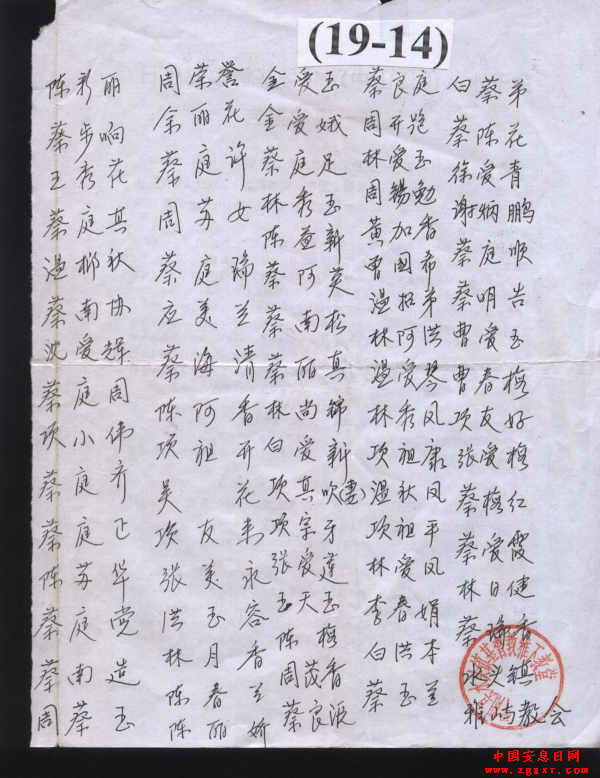 (19-14)
陈彩丽
蔡步响
王秀花
蔡庭其
温柳秋
蔡南协
沈爱辉
蔡庭周
项小伟
蔡庭齐
蔡庭正
陈苏华
蔡庭党
蔡南造
周蔡玉
周荣誉
余丽花
蔡庭许
周苏女
蔡庭瑞
应美兰
蔡海清
陈阿香
项祖开
吴花
项友未
张美永
洪玉容
林月香
陈春兰
陈丽娇
金爱玉
金爱娥
蔡庭足
林秀玉
陈新
蔡阿英
蔡南松
蔡丽真
林尚锦
白爱新
项真吹
项宗牙
张爱莲
玉天玉
陈梅
周茂香
蔡良波
蔡良庭
周开跑
林爱玉
周锡勉
黄加香
曹国希
温招弟
林阿洪
温爱琴
林秀凤
项祖康
温秋凤
项祖平
林爱凤
李春娟
白洪本
蔡玉兰
白蔡弟
蔡陈花
徐爱青
谢炳鹏
蔡庭顺
蔡明告
曹爱玉
曹春梅
项友好
张爱梅
蔡梅红
蔡爱霞
林日健
蔡瑞香
永兴镇
雅屿教会
中国安息日网
www.zgaxr.com